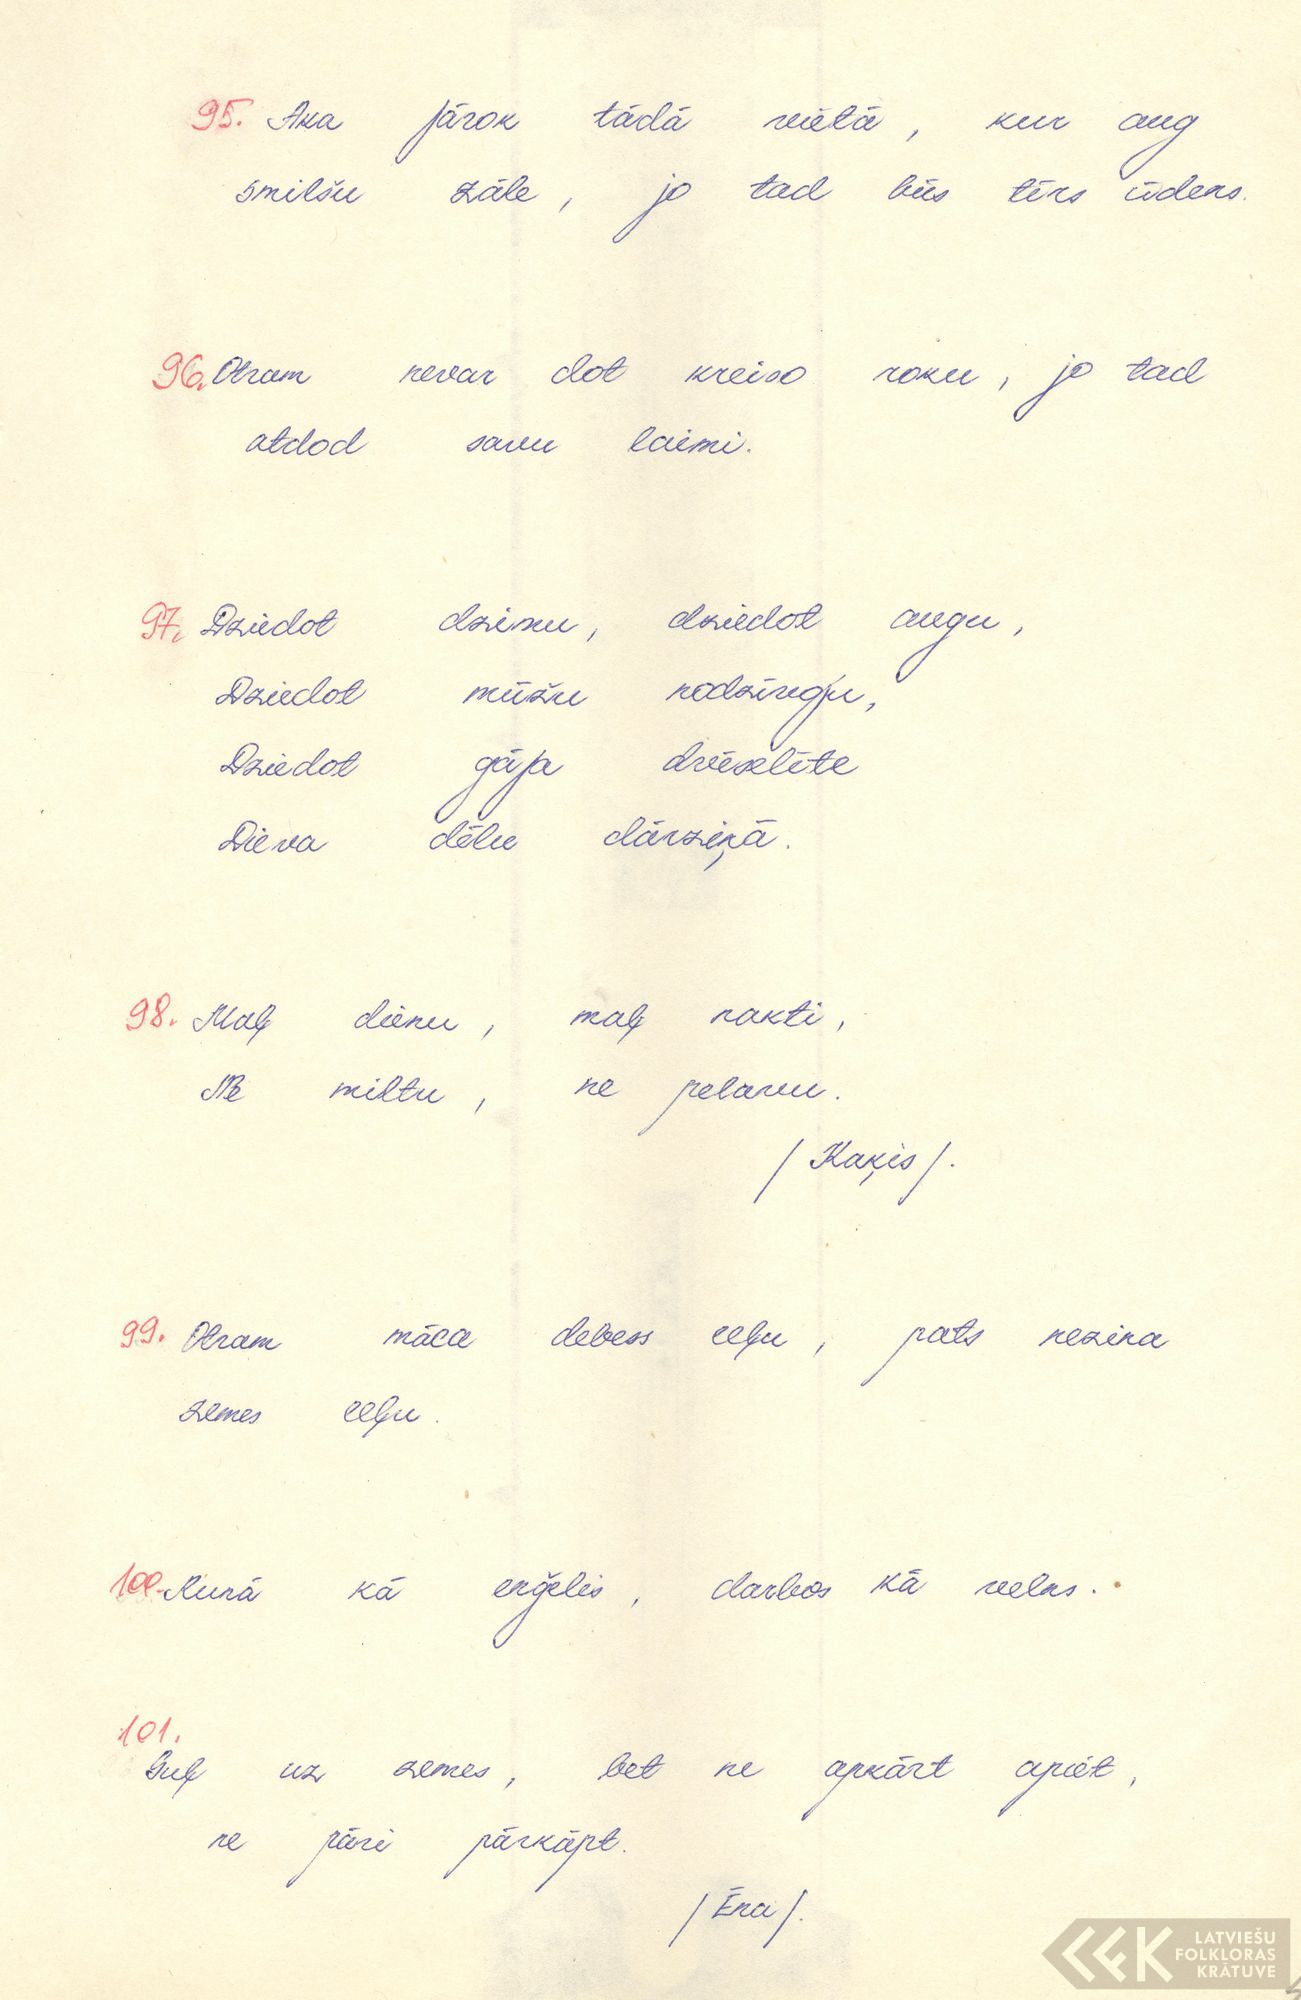 95. Aka jārok tādā vietā, kur aug
smilšu zāle, jo tad būs tīrs ūdens.
96. Otram nevar dot kreiso roku, jo tad
atdod savu laimi.
97. Dziedot dzimu, dziedot augu,
Dziedot mūžu nodzīvoju,
Dziedot gāja dvēselīte
Dieva dēlu dārziņā.
98. Maļ dienu, maļ nakti,
Ne miltu, ne pelavu.
/Kaķis/.
99. Otram māca debess ceļu, pats nezina
zemes ceļu.
100. Runā kā eņģelis, darbos kā velns.
101.
Guļ uz zemes, bet ne apkārt apiet,
ne pāri pārkāpt.
/Ēna/.
LATVIEŠU
FOLKLORAS
KRĀTUVE